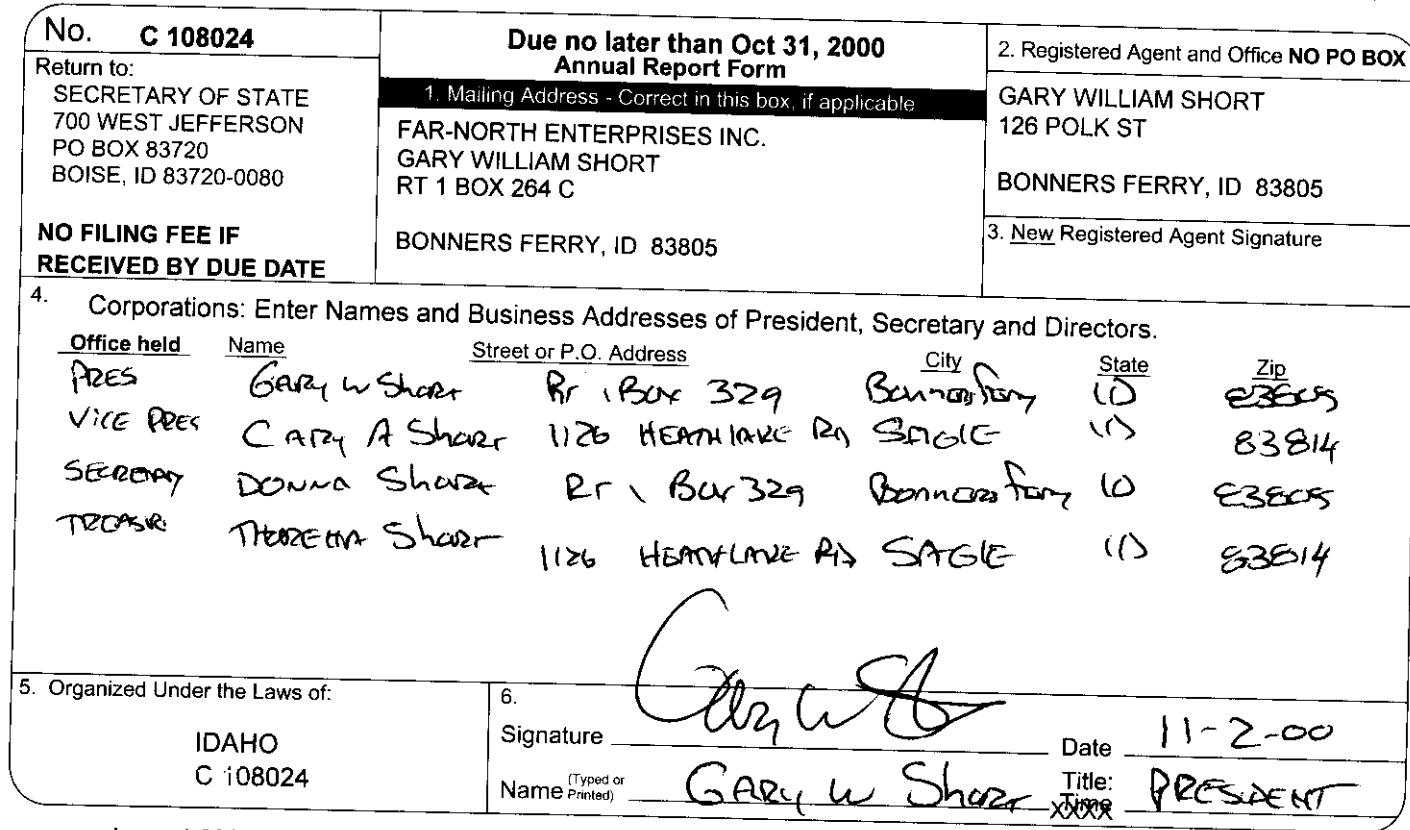 No. C 108024
Return to:
SECRETARY OF STATE
700 WEST JEFFERSON
PO BOX 83720
BOISE, ID 83720-0080
NO FILING FEE IF
RECEIVED BY DUE DATE
Due no later than Oct 31, 2000
Annual Report Form
1. Mailing Address - Correct in this box, if applicable
FAR-NORTH ENTERPRISES INC.
GARY WILLIAM SHORT
RT 1 BOX 264 C
BONNERS FERRY, ID 83805
2. Registered Agent and Office NO PO BOX
GARY WILLIAM SHORT
126 POLK ST
BONNERS FERRY, ID 83805
3. New Registered Agent Signature
4. Corporations: Enter Names and Business Addresses of President, Secretary and Directors.
Office held Name Street or P.O. Address City State Zip
PRES GARY W Short Rr 1 Box 329 Bonners Ferry ID 83805
VICE PRES CARY A Short 1126 HEATH LAKE RD SAGLE ID 83814
SECRETARY DONNA Short Rr 1 Box 329 Bonners Ferry ID 83805
Short 1126 HEATH LAKE RD SAGLE ID 83814
5. Organized Under the Laws of:
IDAHO
C 108024
6.
Signature Gary W Date 11-2-00
Name (Typed or Printed) GARY W Short Title: PRESIDENT